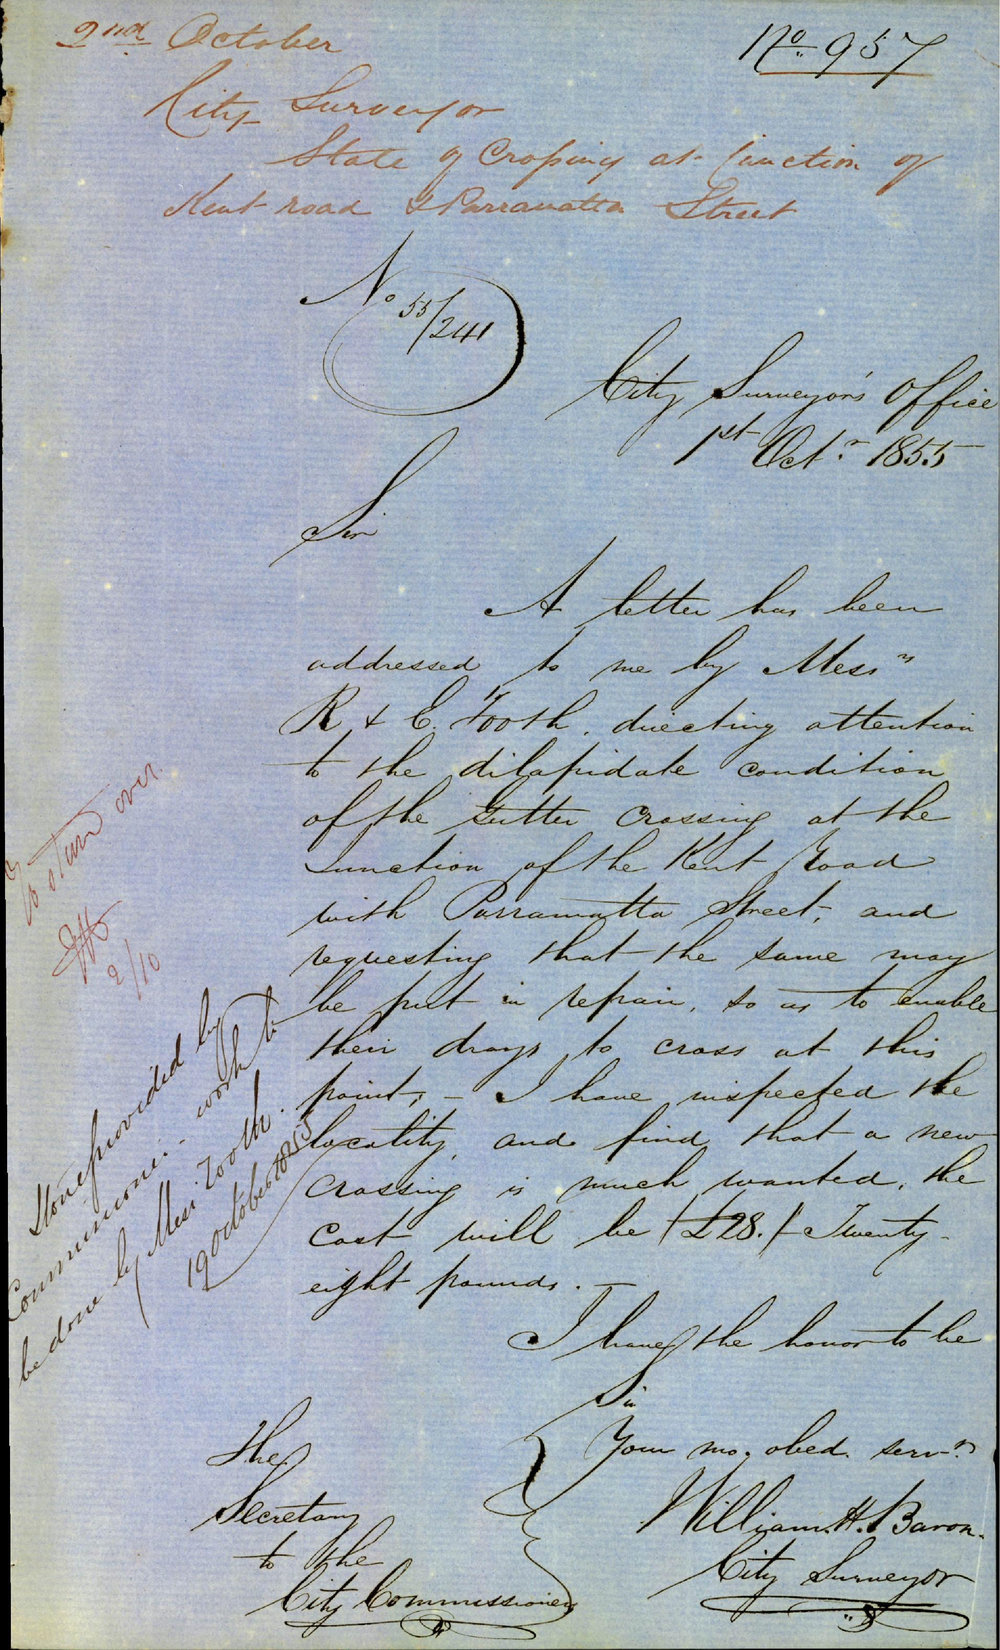 2nd October
No 957
City Surveyor
State of Crossing at Junction of
Kent road & Parramatta Street
No 55/241
City Surveyor's Office
1st Octr 1855
Sir
A letter has been
addressed to me by Messrs
R & E. Tooth, directing attention
to the dilapidate condition
of the Gutter Crossing at the
Junction of the Kent Road
with Parramatta Street, and
requesting that the same may
be put in repair, so as to enable
their drays to cross at this
point, – I have inspected the
locality, and find that a new
crossing is much wanted, the
cost will be (£28.) Twenty-
eight pounds. –
I have the honor to be
Sir
Your mo. obed. servt
William H. Baron.
City Surveyor
The
Secretary
to the
City Commissioners
turn over
2/10
Stone provided by
Commissioners work to
be done by Messrs Tooth.
19 October 1855